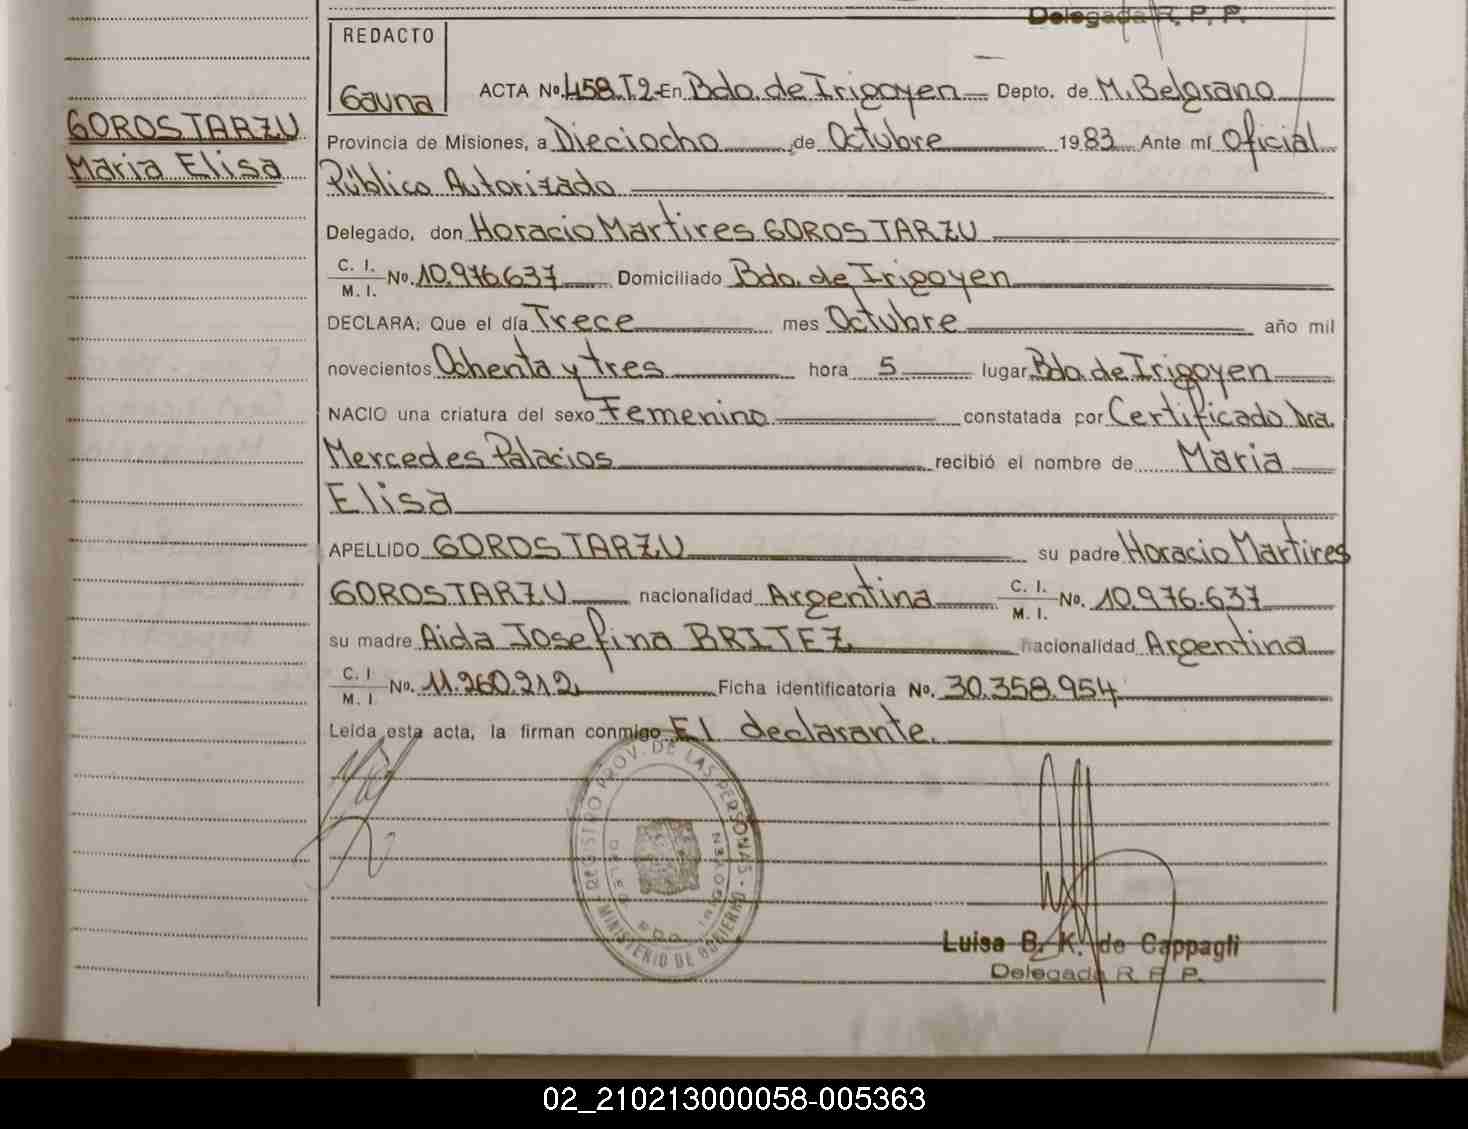 Delegada R. P. P.
REDACTO
Gauna
ACTA No. 458.T2- En Bdo. de Irigoyen Depto. de M. Belgrano
GOROSTARZU
Maria Elisa
Provincia de Misiones, a Dieciocho de Octubre 1983 Ante mí Oficial
Público Autorizado
Delegado, don Horacio Martires GOROSTARZU
C. I.
M. I. No. 10.976.637 Domiciliado Bdo. de Irigoyen
DECLARA: Que el día Trece mes Octubre año mil
novecientos Ochenta y tres hora 5 lugar Bdo. de Irigoyen
NACIO una criatura del sexo Femenino constatada por Certificado Dra.
Mercedes Palacios recibió el nombre de Maria
Elisa
APELLIDO GOROSTARZU su padre Horacio Martires
GOROSTARZU nacionalidad Argentina C. I. M. I. No. 10.976.637
su madre Aida Josefina BRITEZ nacionalidad Argentina
C. I M. I No. 11.260.212 Ficha identificatoria No. 30.358.954
Leída esta acta, la firman conmigo El declarante.
REGISTRO PROV. DE LAS PERSONAS - MINISTERIO DE GOBIERNO
DELEG. BDO. IRIGOYEN
Luisa B. K. de Cappagli
Delegada R. P. P.
02_210213000058-005363